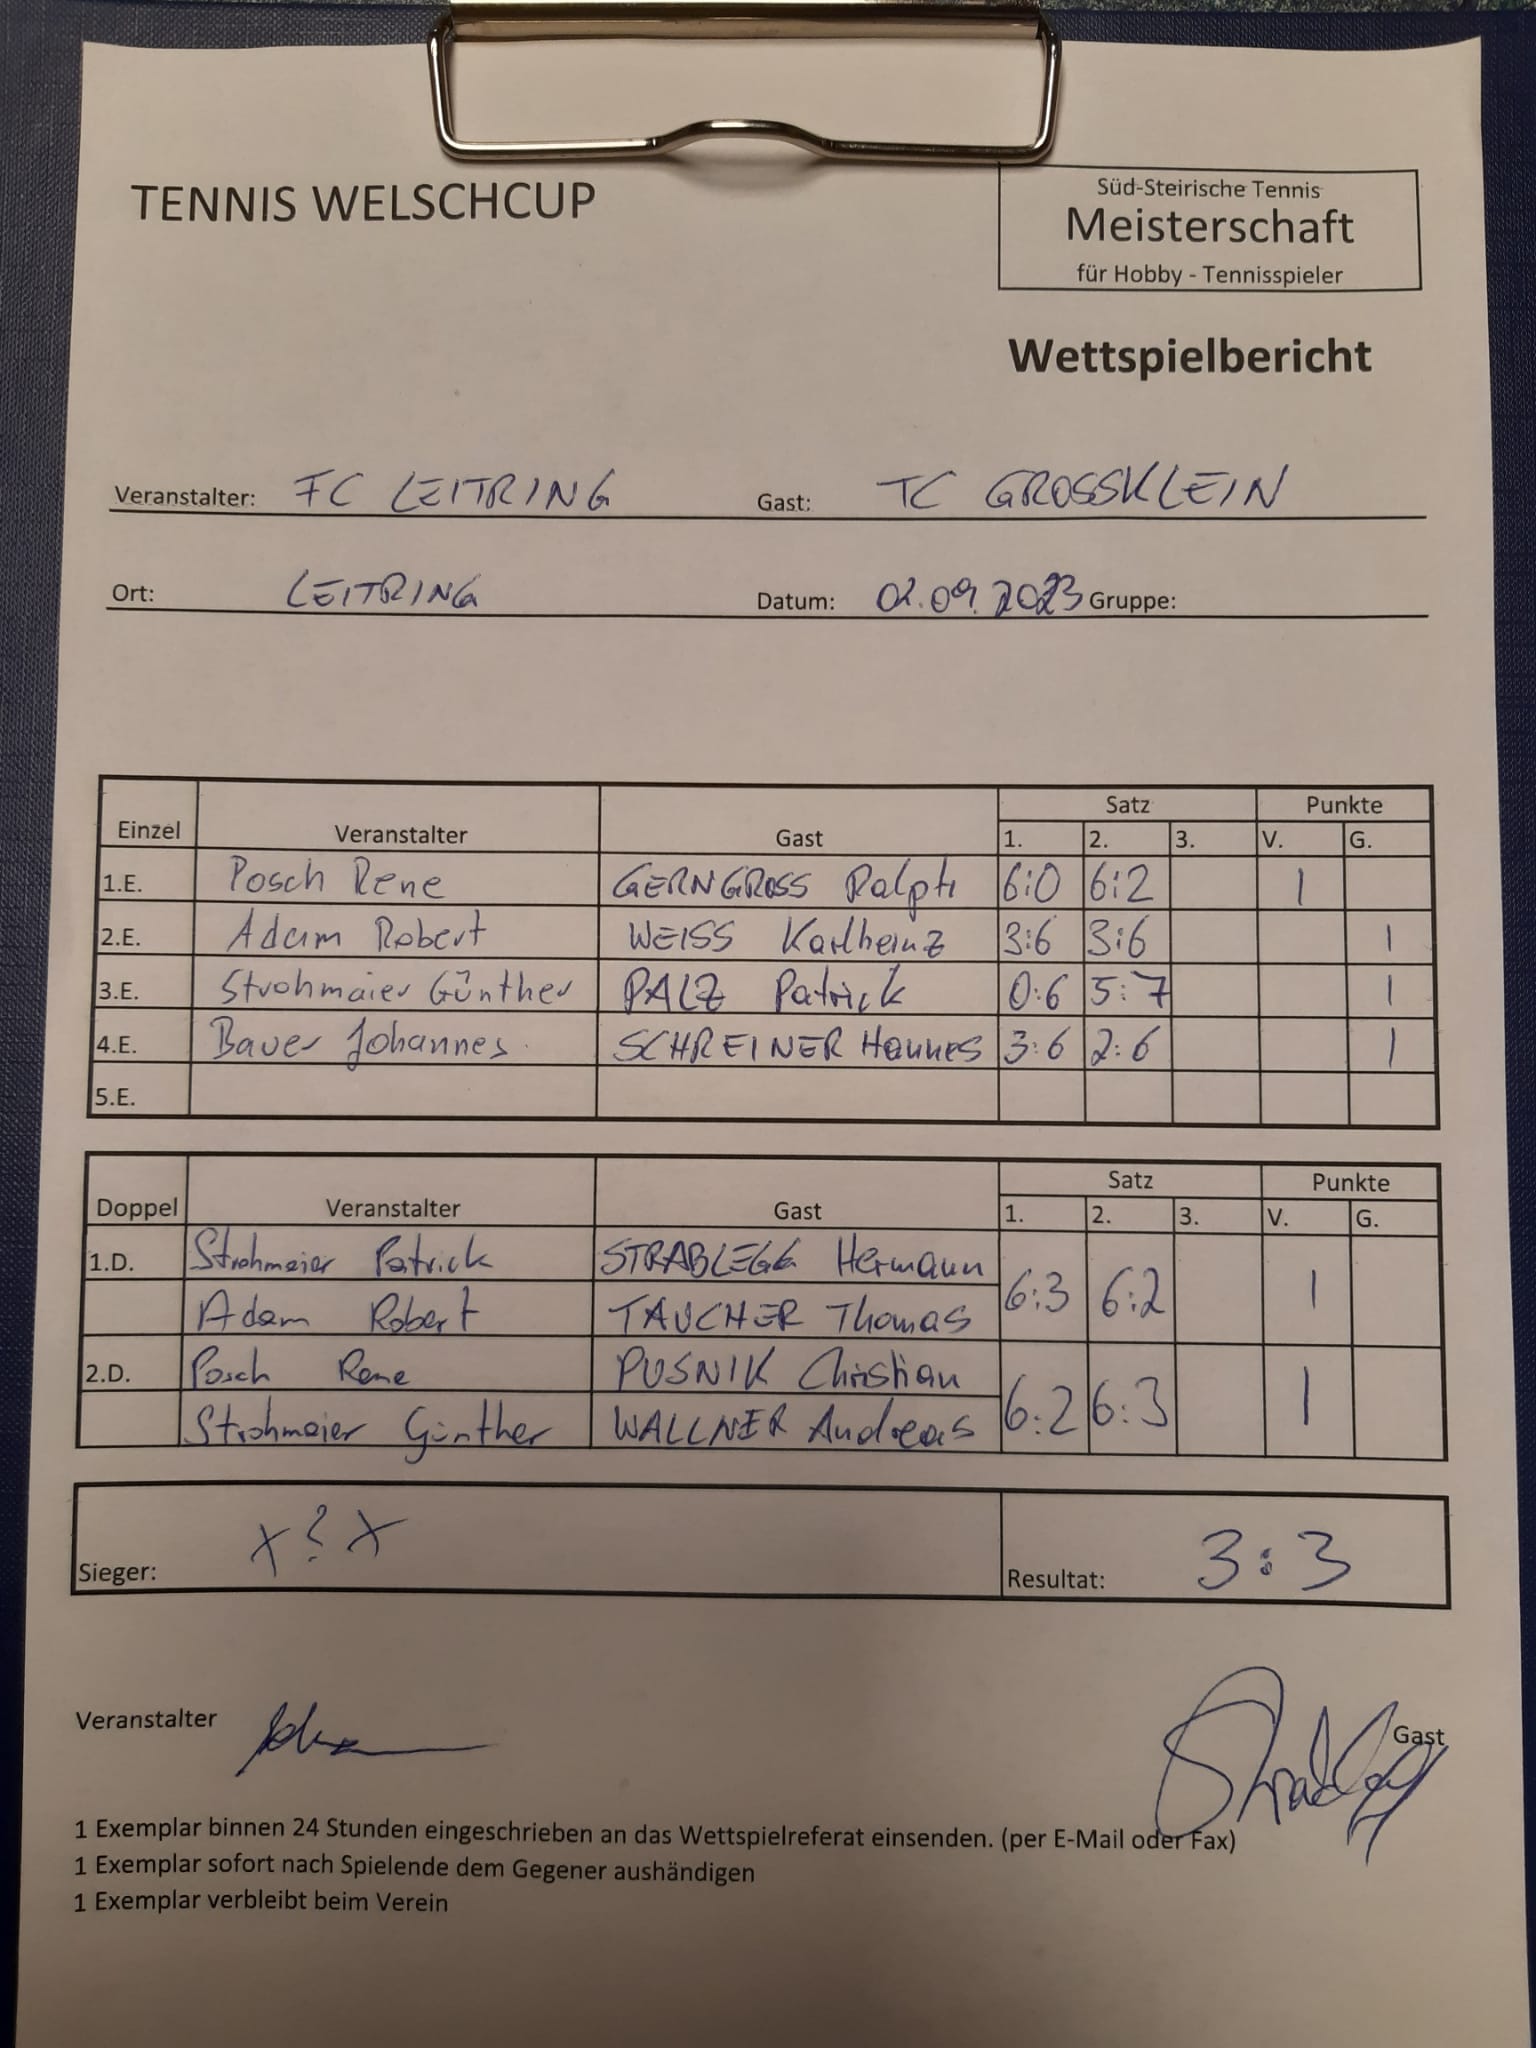 TENNIS WELSCHCUP
Süd-Steirische Tennis
Meisterschaft
für Hobby - Tennisspieler
Wettspielbericht
Veranstalter: FC LEITRING Gast: TC GROSSKLEIN
Ort: LEITRING Datum: 02.09.2023 Gruppe:
Satz Punkte
Einzel Veranstalter Gast 1. 2. 3. V. G.
1.E. Posch Rene GERNGROSS Ralph 6:0 6:2 1
2.E. Adam Robert WEISS Karlheinz 3:6 3:6 1
3.E. Strohmaier Günther PALZ Patrick 0:6 5:7 1
4.E. Bauer Johannes. SCHREINER Hannes 3:6 2:6 1
5.E.
Satz Punkte
Doppel Veranstalter Gast 1. 2. 3. V. G.
1.D. Strohmeier Patrick STRABLEGG Hermann 6:3 6:2 1
Adam Robert TAUCHER Thomas
2.D. Posch Rene PUSNIK Christian 6:2 6:3 1
Strohmeier Günther WALLNER Andreas
Sieger: x ? x Resultat: 3:3
Veranstalter Gast
1 Exemplar binnen 24 Stunden eingeschrieben an das Wettspielreferat einsenden. (per E-Mail oder Fax)
1 Exemplar sofort nach Spielende dem Gegener aushändigen
1 Exemplar verbleibt beim Verein